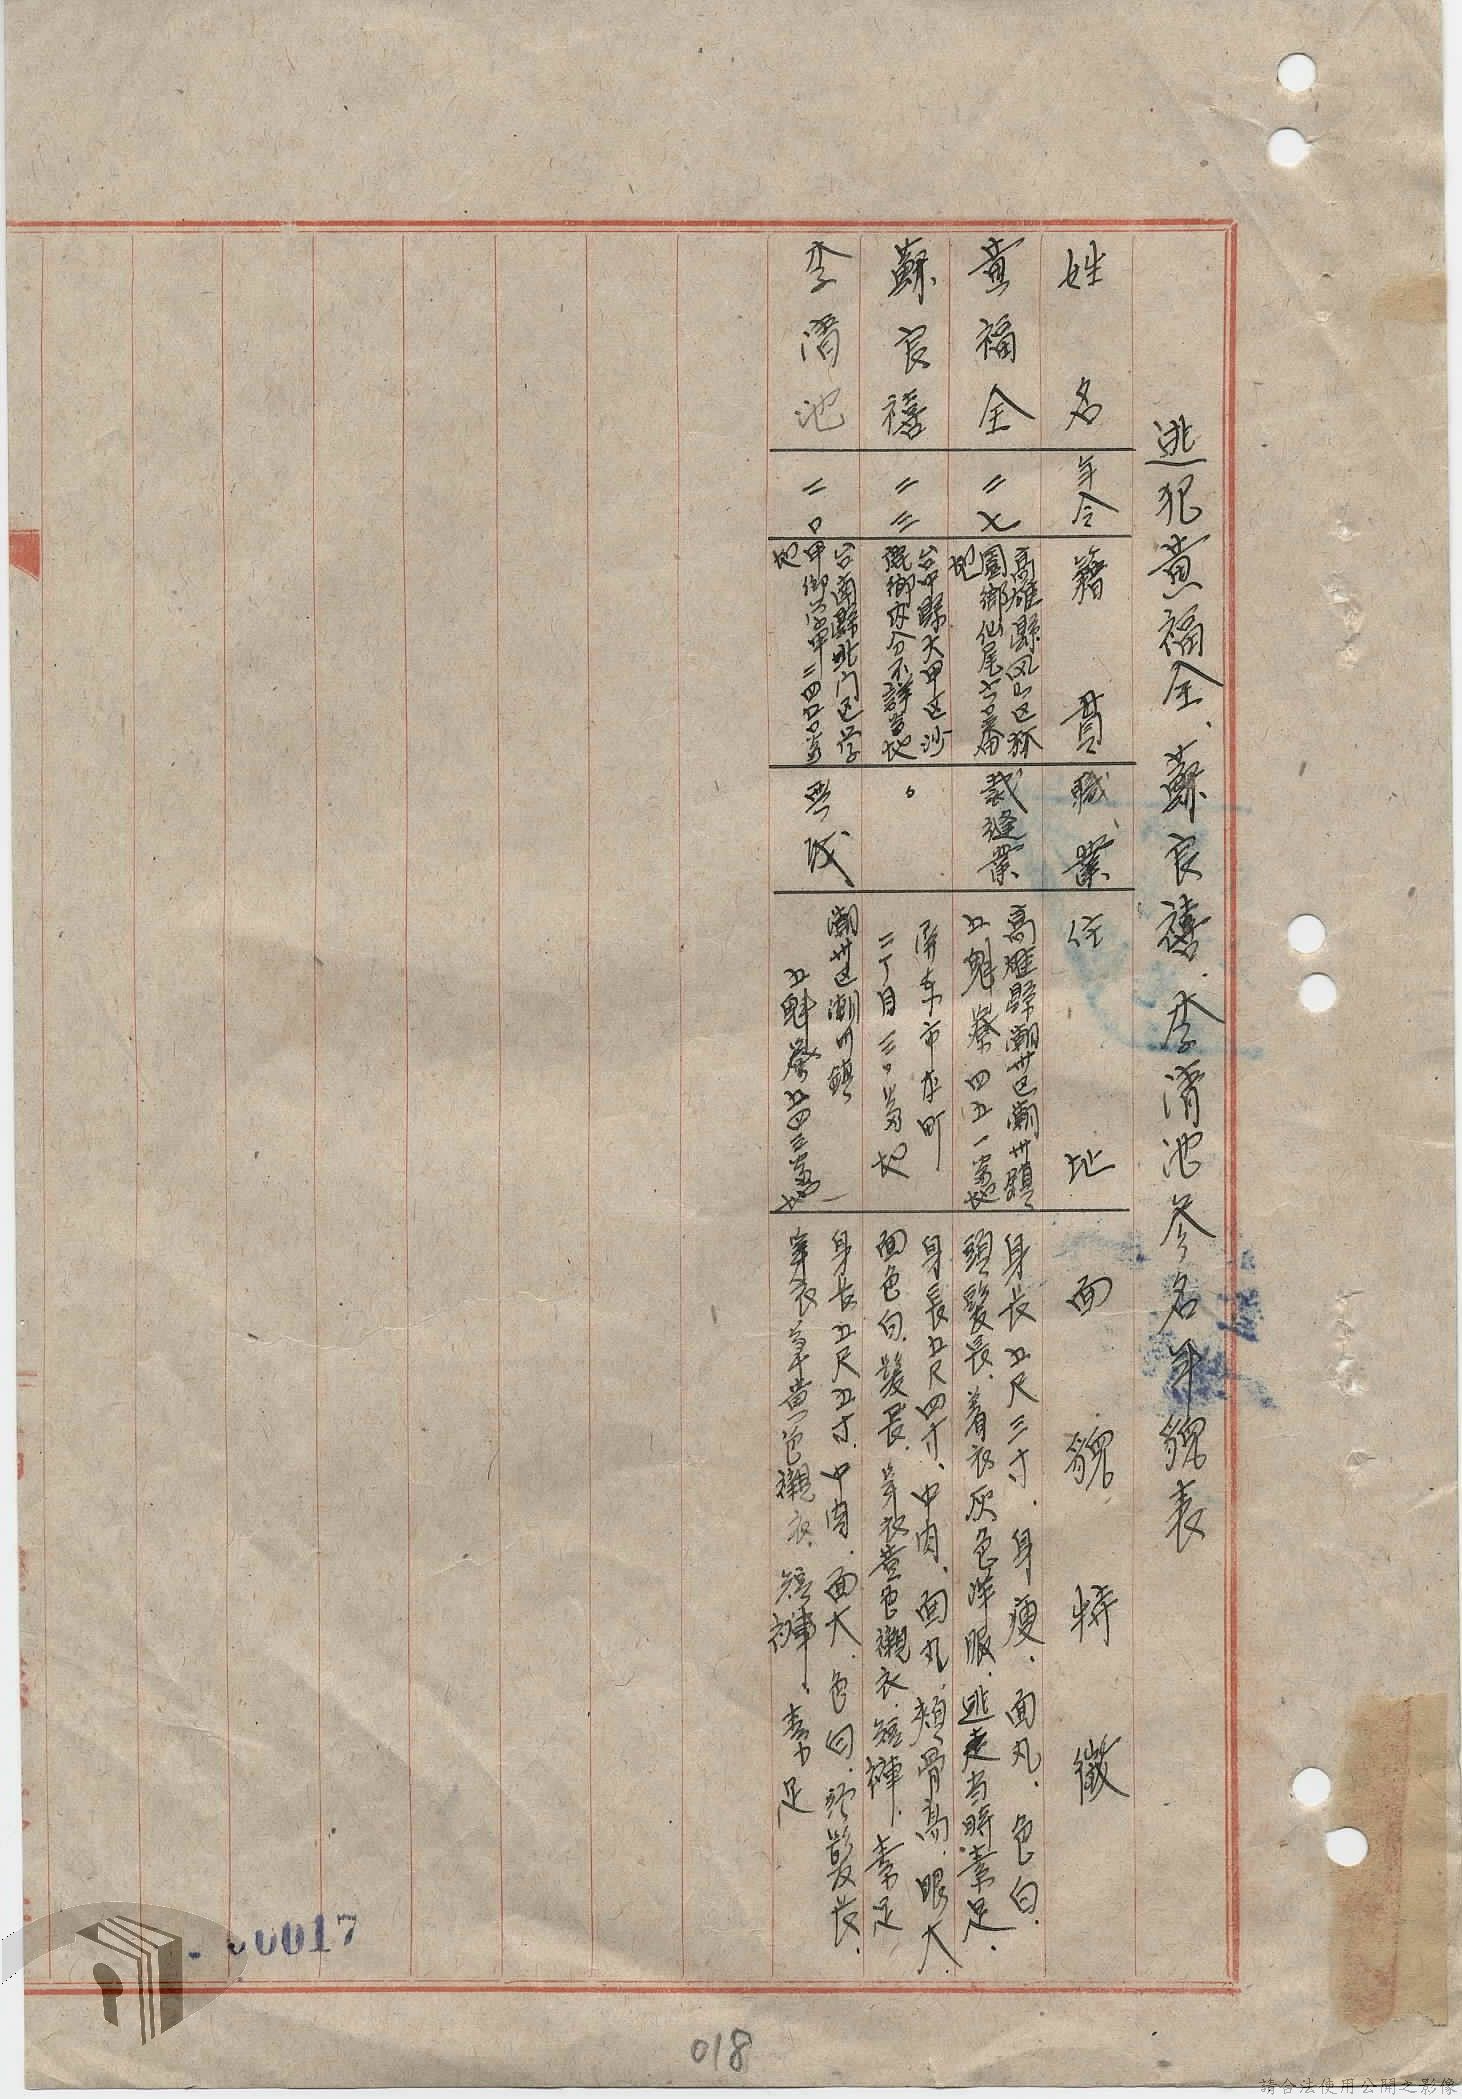 逃犯黃福全、蘇良禧、李清池參名年貌表
姓名 年令 籍貫 職業 住址 面貌特徵
黃福全 二七
高雄縣鳳山区
園鄉仙尾六〇番
地
裁縫業
高雄縣潮州区潮州鎮
五魁寮四五一番地
身長五尺三寸、身瘦、面丸、色白、
頭髮長、着衣灰色洋服、逃走当時素足、
蘇良禧 二三
台中縣大甲区沙
鹿鄉 不詳番地
。
屏東市本町
二丁目三〇番地
身長五尺四寸、中肉、面丸、頰骨高、眼大、
面色白、髮長、穿衣黃色襯衣、短褲、素足
李清池 二〇
台南縣北门区学
甲鄉学甲二四〇番
地
潮州区潮州鎮
五魁寮五四三番地
身長五尺五寸、中肉、面大、色白、頭髮長、
穿衣草黃色襯衣、短褲、素足
00017
018
請合法使用公開之影像